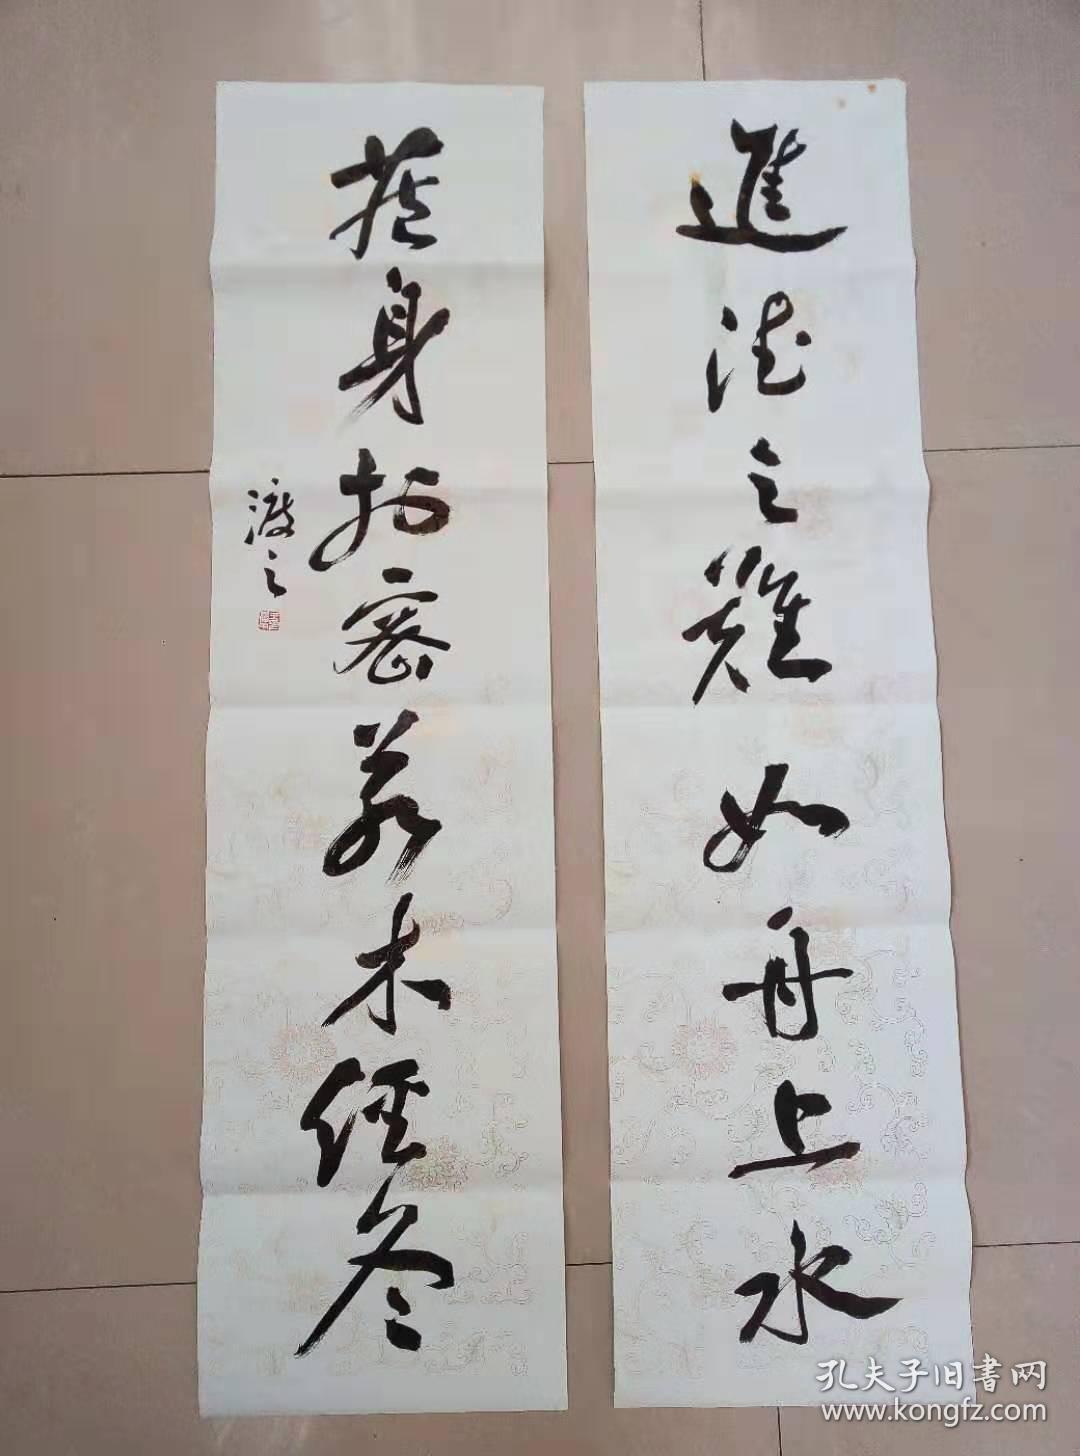 進德之難如舟上水
藏身於密若木經冬
渡之
孔夫子旧书网
www.kongfz.com